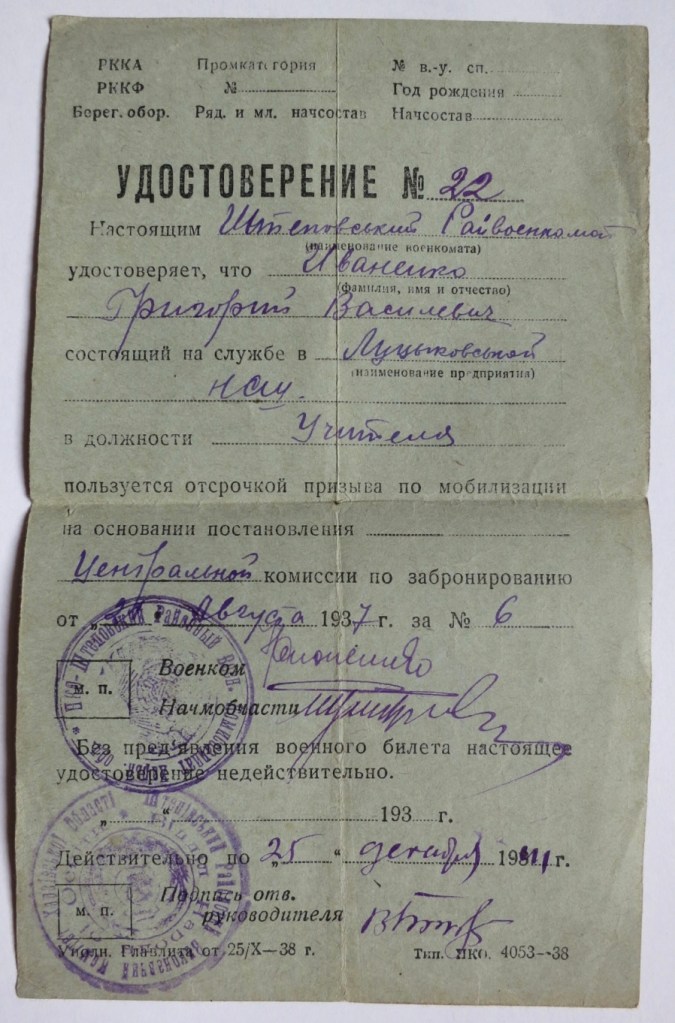 РККА Промкатегория № в.-у. сп.
РККФ № Год рождения
Берег. обор. Ряд. и мл. начсостав Начсостав
УДОСТОВЕРЕНИЕ № 22
Настоящим Штеповський Райвоенкомат
(наименование военкомата)
удостоверяет, что Иваненко
(фамилия, имя и отчество)
Григорий Василевич
состоящий на службе в Луцыковськой
(наименование предприятия)
нсш.
в должности Учителя
пользуется отсрочкой призыва по мобилизации
на основании постановления
Центральной комиссии по забронированию
от „ “ Августа 1937 г. за № 6
Военком
м. п.
Начмобчасти
Без предъявления военного билета настоящее
удостоверение недействительно.
„ “ 193 г.
Действительно по „25“ декабря 19 г.
Подпись отв.
м. п.
руководителя
Уполн. Главлита от 25/X—38 г. Тип. ПКО. 4053—38